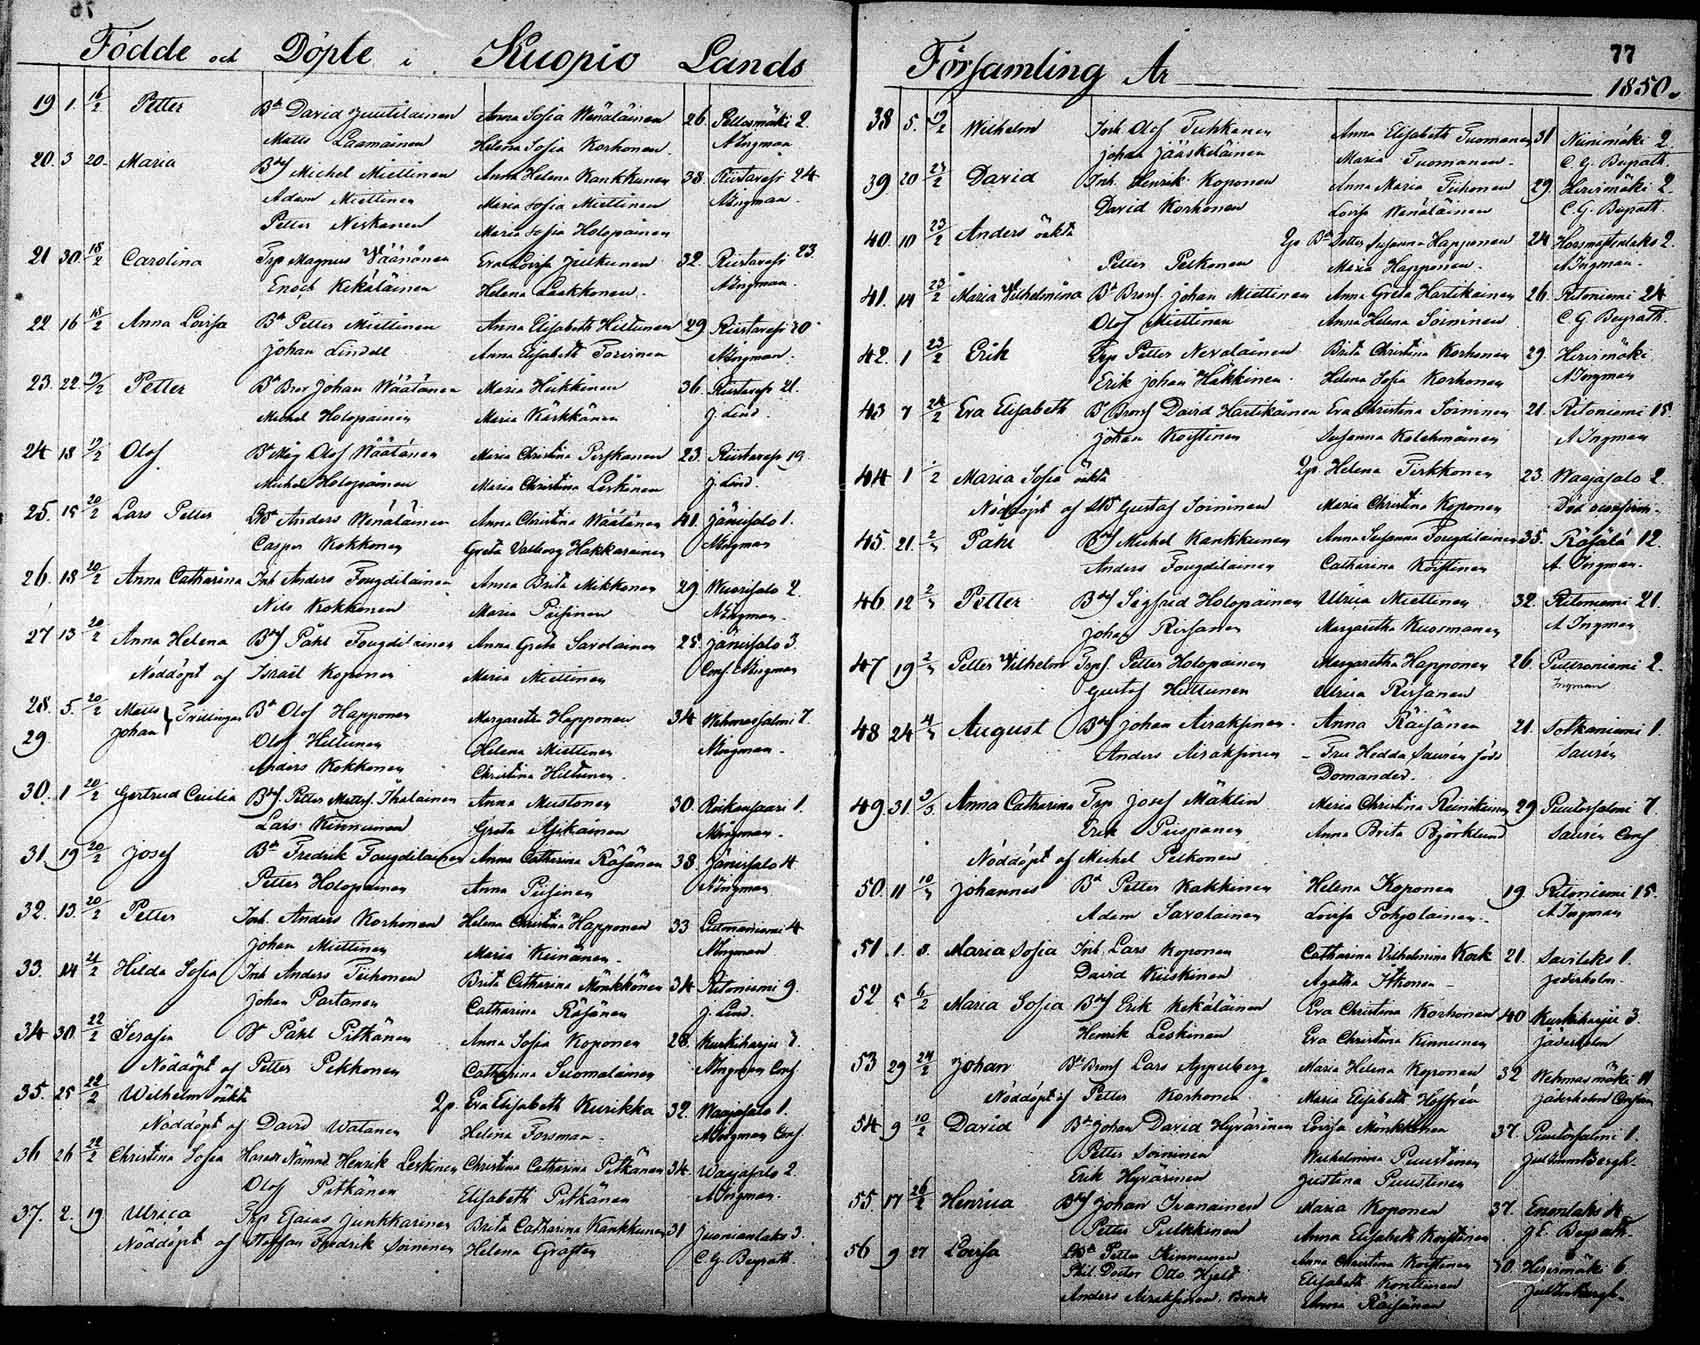 76
Födde och Döpte i Kuopio Lands
19 1. 16/2 Petter Bd David Juutilainen Anna Sofia Wänäläinen 26. Pellosmäki 2.
Matts Laamainen Helena Sofia Korhonen. A Ingman
20. 3 20- Maria Bdsf Michel Miettinen Anna Helena Kankkunen 38. Riistavesi 24
Adam Miettinen Maria Sofia Miettinen A Ingman.
Petter Niskanen Maria Sofia Holopainen
21 30. 18/2 Carolina Trp Magnus Väänänen Eva Lovisa Julkunen 32. Riistavesi 23.
Enoch Kekäläinen Helena Laakkonen. A Ingman.
22 16 18/2 Anna Lovisa Bd Petter Miettinen Anna Elisabeth Hiltunen 29 Riistavesi 20
Johan Lindell Anna Elisabeth Torvinen A Ingman.
23. 22. 19/2 Petter Bd Bror Johan Wäätänen Maria Heikkinen 36. Riistavesi 21.
Michel Holopainen Maria Kärkkänen J. Lind.
24 18 19/2 Olof Bd Måg Olof Wäätänen Maria Christina Pirskanen 23. Riistavesi 19.
Michel Holopainen Maria Christina Leskinen J. Lind.
25. 15 20/2 Lars Petter Anders Wänäläinen Anna Christina Wäätänen 41. Jänissalo 1.
Casper Kokkonen Greta Valborg Hakkarainen A Ingman
26. 18 20/2 Anna Catharina Inh Anders Tougdilainen Anna Brita Mikkonen 29. Wuorisalo 2.
Nils Kokkonen Maria Piisinen A Ingman.
27 13 20/2 Anna Helena Bdsf Påhl Tougdilainen Anna Greta Savolainen 25. Jänissalo 3.
Nöddöpt af Israël Koponen Maria Miettinen Conf. A Ingman
28. 5. 20/2 Matts Tvillingar Bd Olof Happonen Margareta Happonen 34 Wehmassalmi 7.
29. Johan Olof Hiltunen Helena Miettinen A Ingman.
Anders Kokkonen Christina Hiltunen.
30. 1 20/2 Gertrud Cecilia Bdsf. Petter Mattsf. Ihalainen Anna Mustonen 30. Roikansaari 1.
Lars Kinnunen Greta Asikainen A Ingman.
31 19 20/2 Josef Bd Fredrik Tougdilainen Anna Catharina Räsänen 38. Jänissalo 4
Petter Holopainen Anna Piisinen A Ingman
32. 13. 20/2 Petter Inh. Anders Korhonen Helena Christina Happonen 33 4
Johan Miettinen Maria Keinänen. A Ingman
33. 14 21/2 Hilda Sofia Inh Anders Tiihonen Brita Catharina Mönkkönen 34 Ritoniemi 9.
Johan Partanen Catharina Räsänen J. Lind.
34 30. 22/2 Serafia Bd Påhl Pitkänen Anna Sofia Koponen 28. Kurkiharju 7.
Nöddöpt af Petter Pekkonen Catharina Suomalainen A Ingman Conf
35. 25 22/2 Wilhelm oäkta Qp. Eva Elisabeth Kurikka 32. Waajasalo 1.
Nöddöpt af David Watanen Helena Forsman. A Ingman Conf
36 26 22/2 Christina Sofia Härads Nämnd Henrik Leskinen Christina Catharina Pitkänen 34. Waajasalo 2.
Olof Pitkänen Elisabeth Pitkänen A Ingman.
37. 2. 19 Ulrica Trp Esaias Junkkarinen Brita Catharina Kankkunen 31 Juonionlaks 3.
Nöddöpt af Staffan Fredrik Soininen Helena Gråsten C. G. Bergroth.
77
Församling År 1850.
38 5. 19/2 Wilhelm Inh Olof Tuhkanen Anna Elisabeth Tuomanen 31 Niinimäki 2.
Johan Jääskeläinen Maria Tuomanen. C. G. Bergroth.
39 20 23/2 David Inh. Henrik Koponen Anna Maria Tiihonen 29. Hirvimäki 2.
David Korhonen Lovisa Wänäläinen C. G. Bergroth.
40. 10 23/2 Anders oäkta Qp Bd Dotter Susanna Happonen 24 2.
Petter Pelkonen Maria Happonen. A Ingman.
41. 14 23/2 Maria Wilhelmina Bd Bronsf Johan Miettinen Anna Greta Hartikainen 26. Ritoniemi 24
Olof Miettinen Anna Helena Soininen C. G. Bergroth.
42. 1 23/2 Erik Trp Petter Nevalainen Brita Christina Korhonen 29. Hirvimäki
Erik Johan Hakkinen. Helena Sofia Korhonen A Ingman
43 7 24/2 Eva Elisabeth Bd Bronsf David Hartikainen Eva Christina Soininen 21. Ritoniemi 15.
Johan Koistinen Susanna Kolehmainen A Ingman
44 1 /2 Maria Sofia oäkta Qp Helena Pirkkonen 23. Waajasalo 2.
Nöddöpt af Gustaf Soininen Maria Christina Koponen
45. 21. 2/3 Påhl Bdsf Michel Kankkunen Anna Susanna Tougdilainen 35. Räsälä 12.
Anders Tougdilainen Catharina Koistinen A. Ingman.
46 12 2/3 Petter Bdsf Sigfrid Holopainen Ulrica Miettinen 32. Ritoniemi 21.
Johan Rissanen Margaretha Kuosmanen A Ingman
47 19 2/3 Petter Wilhelm Trpsf. Petter Holopainen Margaretha Happonen 26. Puutroniemi 2.
Gustaf Hiltunen Ulrica Rissanen Ingman
48 24 4/3 August Bdsf Johan Airaksinen. Anna Räisänen 21. Sotkaniemi 1.
Anders Airaksinen Fru Hedda Saurén född Saurén
Domander.
49. 31 3/3 Anna Catharina Trp Josef Mäklin Maria Christina Ruuskanen 29 Puutosalmi 7.
Erik Piispanen Anna Brita Björklund Sauren Conf
Nöddöpt af Michel Pelkonen
50. 11 10/3 Johannes Bd Petter Kakkinen Helena Koponen 19. Ritoniemi 15.
Adam Savolainen Lovisa Pohjolainen. A Ingman
51 .1. 3. Maria Sofia Inh. Lars Koponen Catharina Wilhelmina Kock 21. Savilaks 1.
David Kuskinen Agatha Itkonen Jäderholm.
52 5 6/2 Maria Sofia Bdsf Erik Kekäläinen Eva Christina Korhonen 40 Kurkiharju 3.
Henrik Leskinen Eva Christina Kinnunen Jäderholm
53 29 24/2 Johan Bd Bronsf Lars Appelberg Maria Helena Koponen 32 Wehmasmäki 11
Nöddöpt af Petter Korhonen Maria Elisabeth Hoffrén Jäderholm Confirm
54 9 10/2 David Bd Johan David Hyvärinen Lovisa Mönkkönen 37. Puutosalmi 1.
Petter Soininen Wilhelmina Puustinen Jul Immbergh.
Erik Hyvärinen Justina Puustinen
55. 17 26/2 Henrica Bdsf Johan Ivanainen Maria Koponen 37. Enonlaks 4.
Petter Pulkkinen Anna Elisabeth Koistinen J. E. Bergroth.
56 9 27 Lovisa Petter Kinnunen Anna Christina Koistinen 30. Hirvimäki 6.
Phil. Doctor Otto Hjelt Elisabeth Konttinen
Anders Airaksinen. Bonde Anna Räisänen